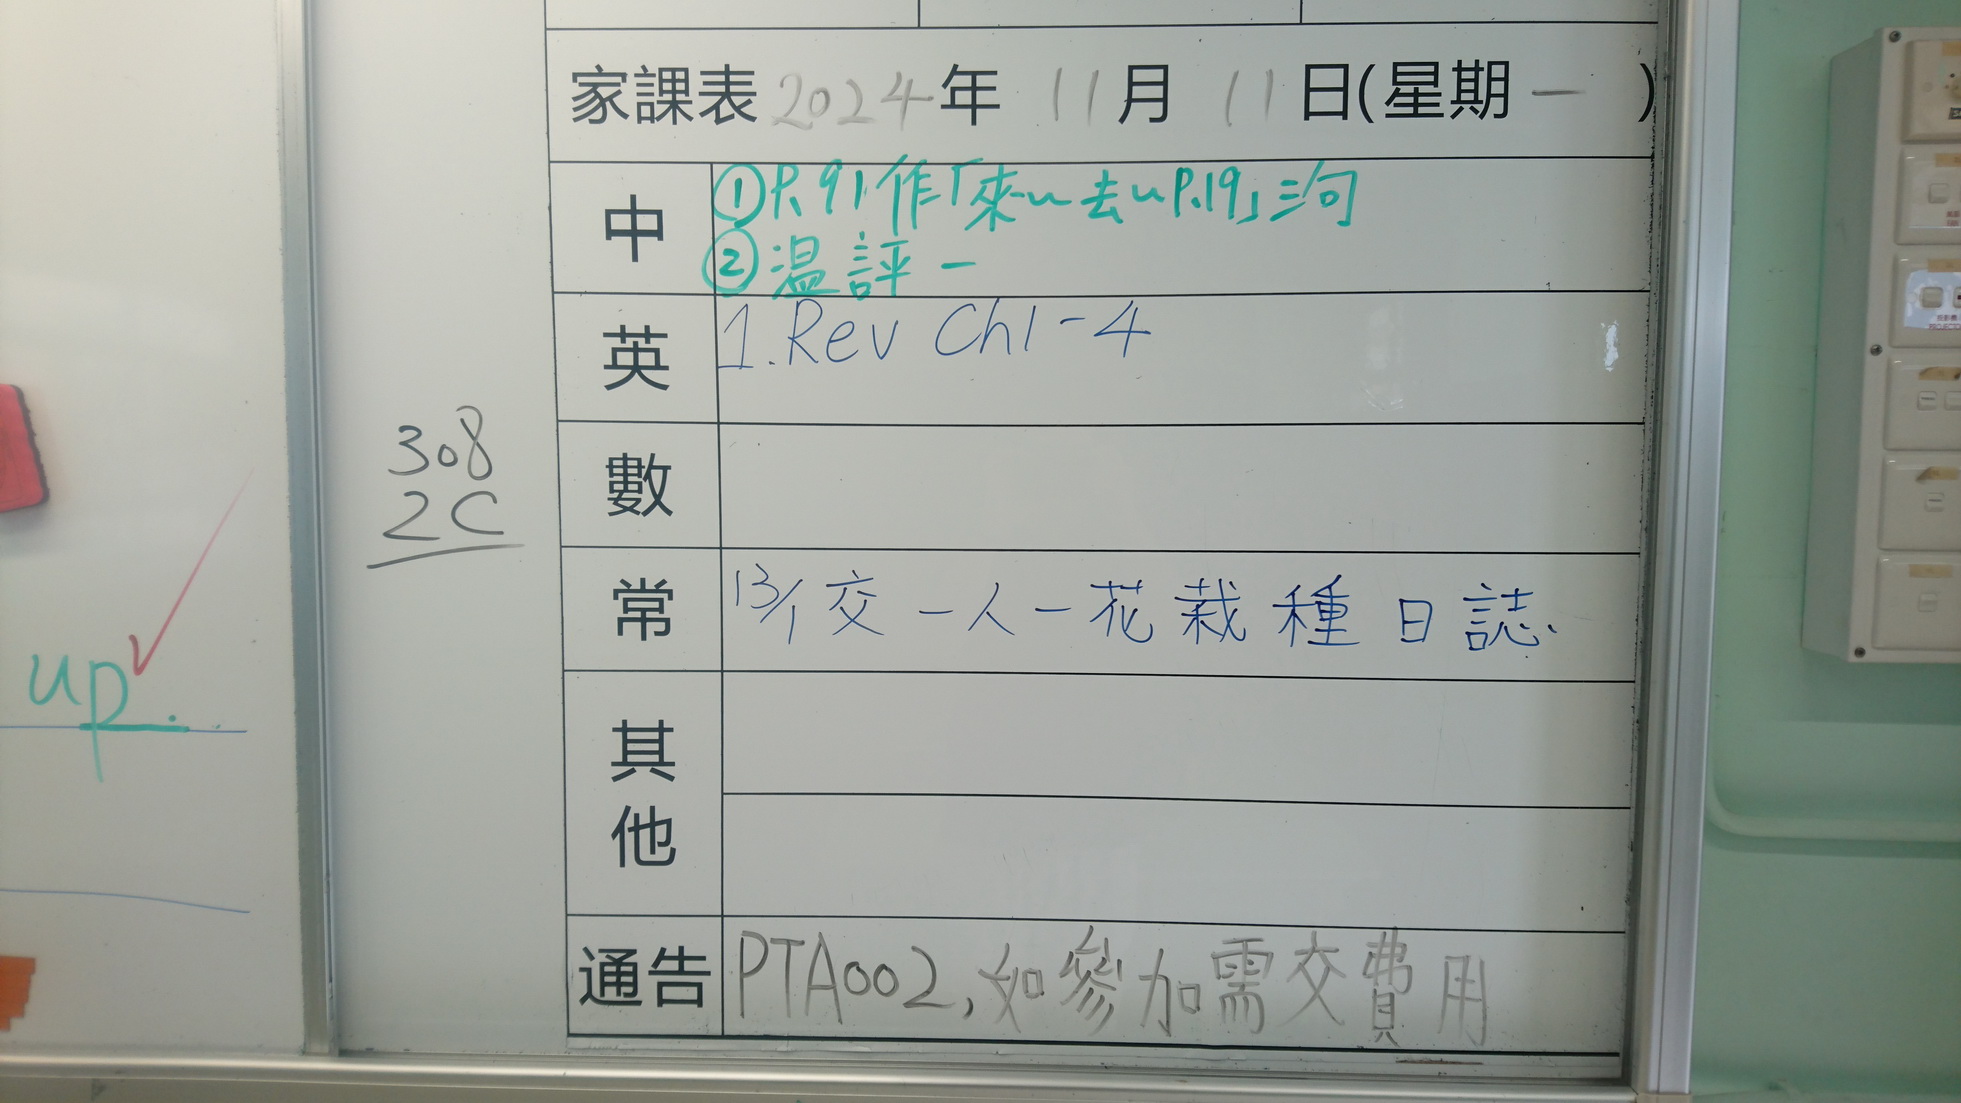 家課表 2024年 11月 11日(星期一 )
中
①P.91作「來~去~P.19」三句
②温評一
英
1. Rev Ch1-4
數
常
13/1交一人一花栽種日誌.
其他
通告
PTA002,如參加需交費用
308
2C
up.